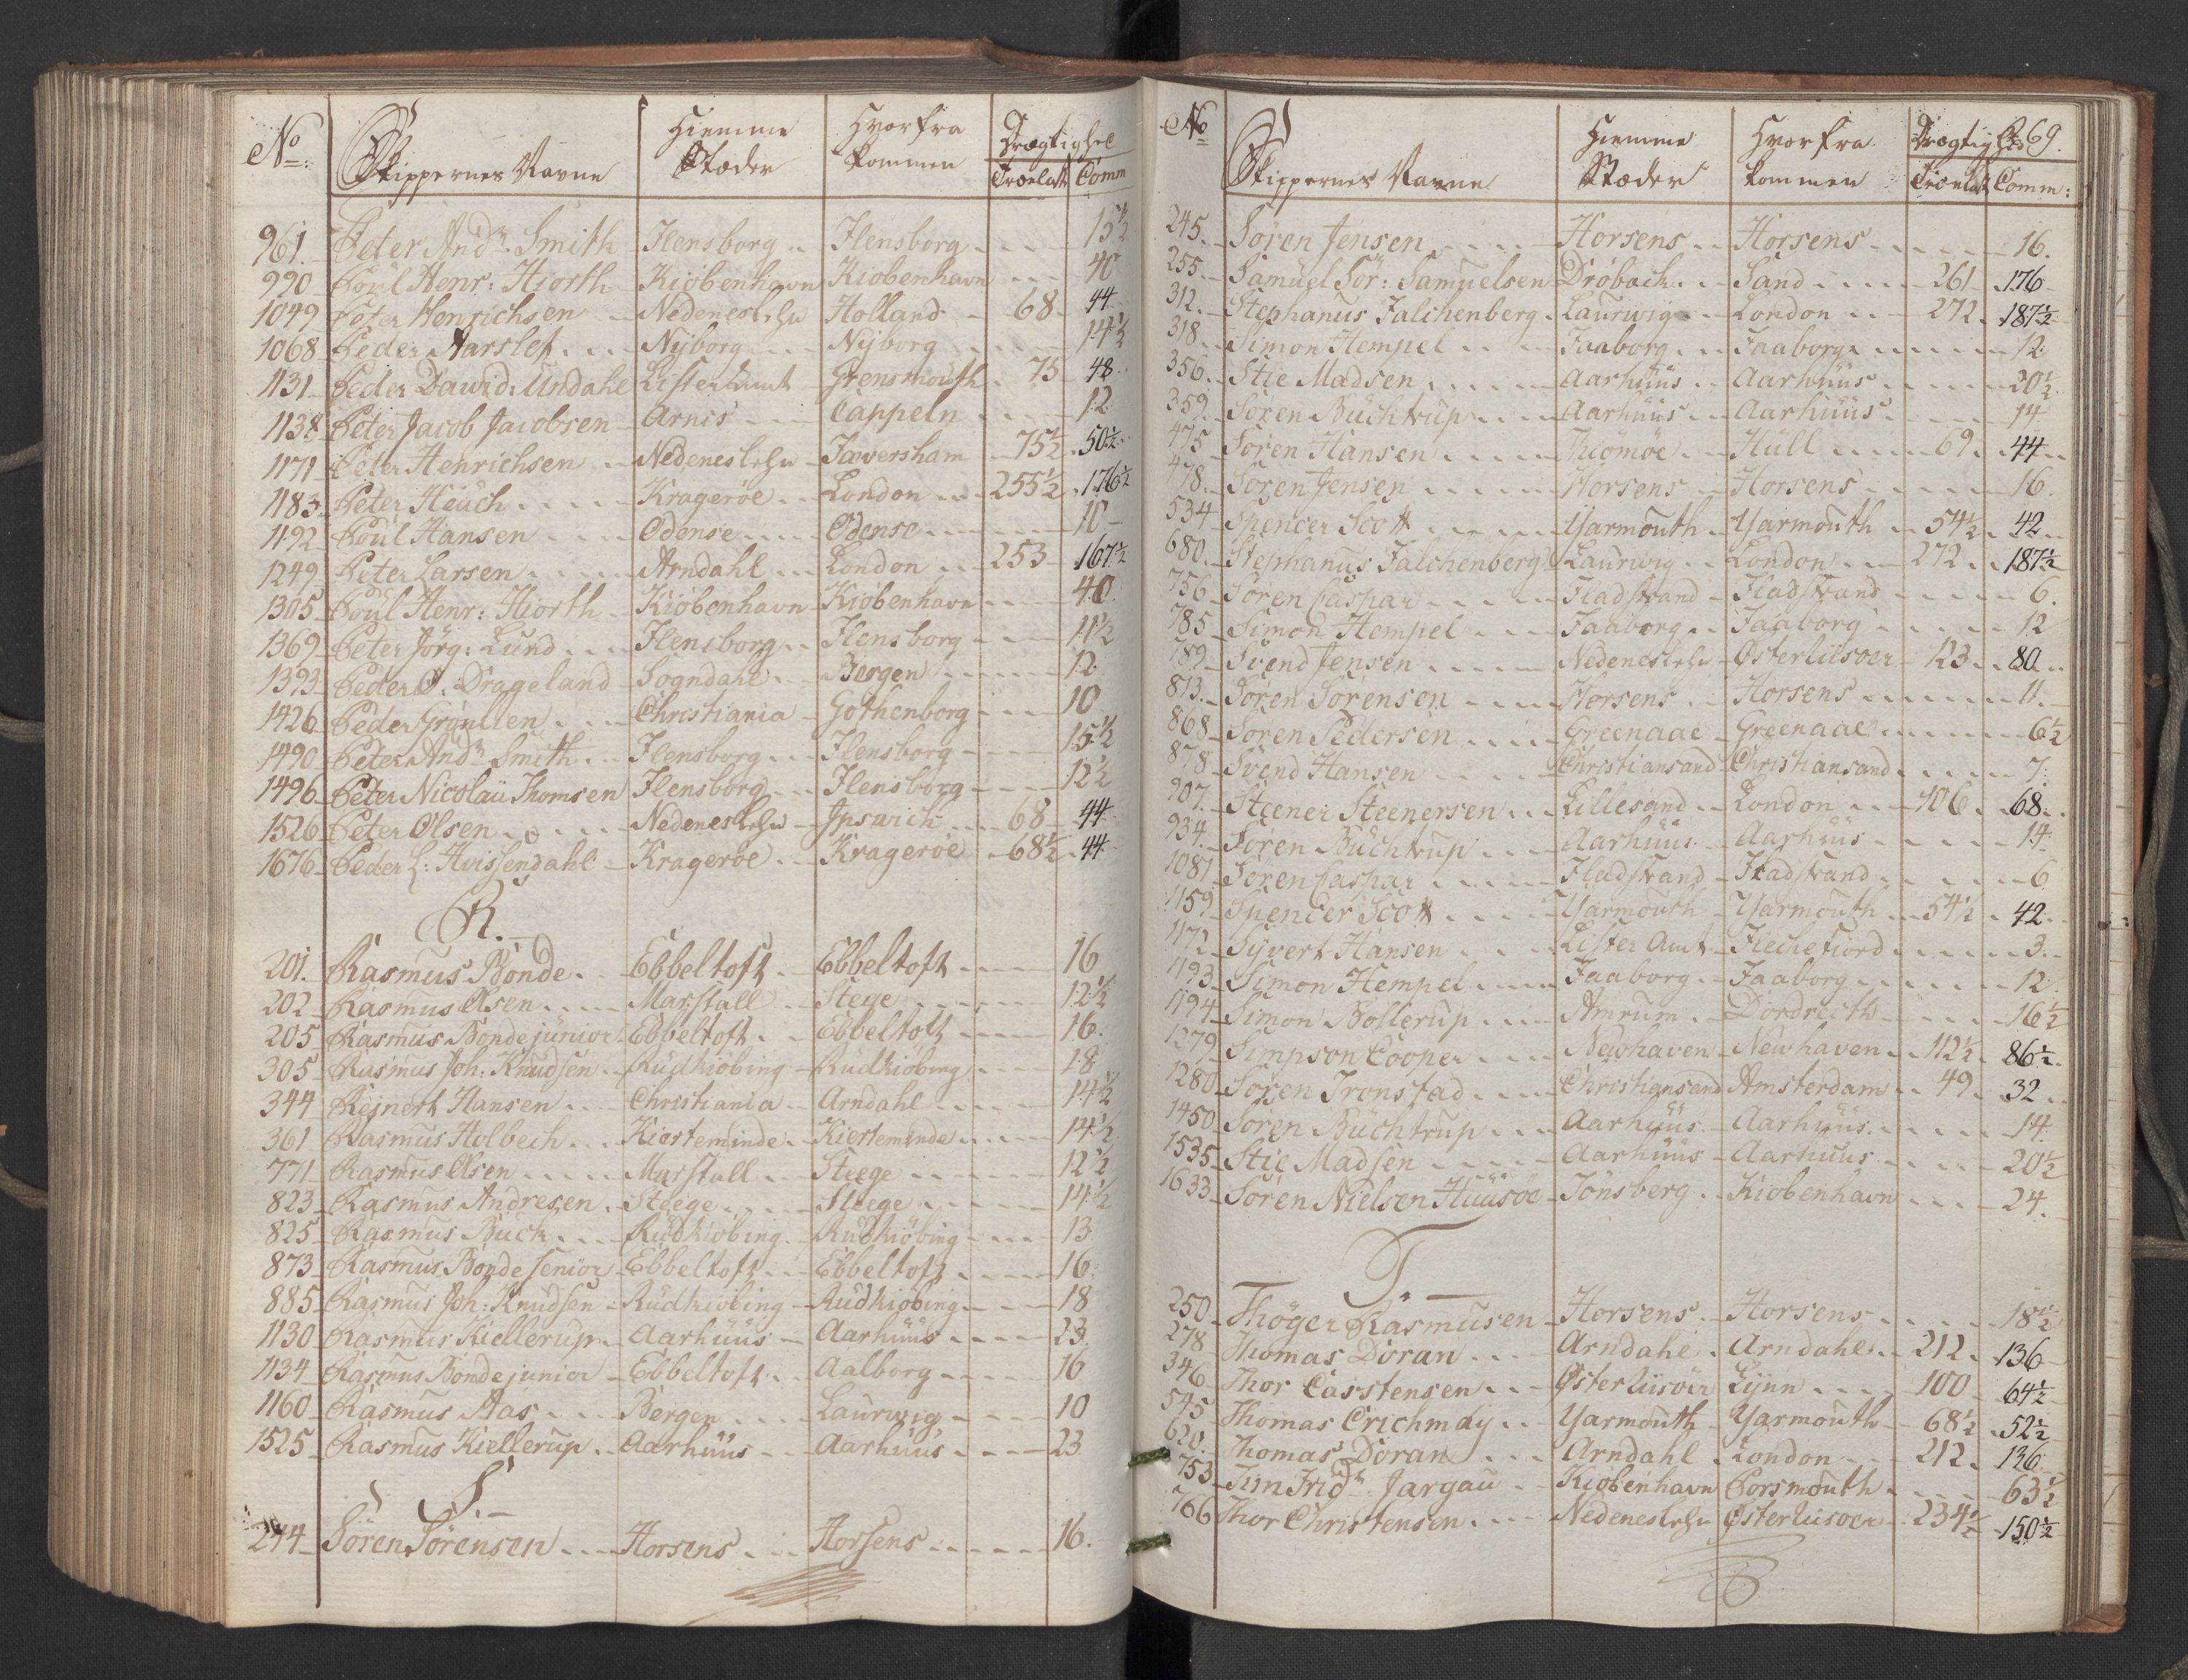 No: Skippernes Navne Hiemme Stæder Hvorfra kommen Drægtighed Trælast Comm
961. Peter Andr. Smith Flensborg Flensborg 15½
990 Poul Henr: Hiorth Kiöbenhavn Kiobenhavn 40
1049 Peter Henrichsen Nedenes Lehn Holland 68 44
1068 Peder Aarslef Nyborg Nyborg 14½
1131 Peder Dawid: Undahl Lister Amt Grensmouth 75 48
1138 Peter Jacob Jacobsen Arnis Cappeln 12
1171 Peter Henrichsen Nedenes Lehn Fæversham 75½ 50½
1183 Peter Heuch Kragerøe London 255½ 176½
1192 Poul Hansen Odense Odense 10
1249 Peter Larsen Arndahl London 253 167½
1305 Poul Henr: Hiorth Kiöbenhavn Kiöbenhavn 40
1369 Peter Jörg: Lund Flensborg Flensborg 11½
1393 Peder O: Drageland Sogndahl Bergen 12
1426 Peder Grønlien Christiania Gothenborg 10
1490 Peter Andr Smith Flensborg Flensborg 15½
1496 Peter Nicolau Thomsen Flensborg Flensborg 12½
1526 Peter Olsen Nedenes Lehn Ipswich 68 44
1676 Peder L: Hvissendahl Kragerøe Kragerøe 68½ 44
R.
201. Rasmus Bonde Ebbeltoft Ebbeltoft 16
202 Rasmus Olsen Marstall Stege 12½
205 Rasmus Bonde junior Ebbeltoft Ebbeltoft 16
305 Rasmus Joh: Knudsen Rudkiøbing Rudkiøbing 18
344 Rejnert Hansen Christiania Arndahl 14½
361 Rasmus Holbech Kierteminde Kierteminde 14½
771 Rasmus Olsen Marstall Steege 12½
823 Rasmus Andresen Steege Steege 14½
825 Rasmus Buch Rudkiøbing Rudkiøbing 13
873 Rasmus Bonde senior Ebbeltoft Ebbeltoft 16
885 Rasmus Joh: Knudsen Rudkiøbing Rudkiøbing 18
1130 Rasmus Kiellerup Aarhuus Aarhuus 23
1134 Rasmus Bonde junior Ebbeltoft Aalborg 16
1160 Rasmus Aas Bergen Laurwig 10
1525 Rasmus Kiellerup Aarhuus Aarhuus 23
S.
244 Sören Sörensen Horsens Horsens 16.
No Skippernes Navne Hiemme Stæder Hvorfra kommen Drægtighed 69. Trælast Comm:
245. Sören Jensen Horsens Horsens 16.
255 Samuel Sör: Samuelsen Dröback Sand 261 176
312. Stephanus Falchenberg Laurwig London 272 187½
318. Simon Hempel Faaborg Faaborg 12
356. Stie Madsen Aarhuus Aarhuus 20½
359. Sören Buchtrup Aarhuus Aarhuus 14
475 Sören Hansen Thiömöe Hull 69 44
478. Sören Jensen Horsens Horsens 16
534 Spencer Scott Yarmouth Yarmouth 54½ 42
680. Stephanus Falchenberg Laurwig London 272 187½
756 Sören Caspar Fladstrand Fladstrand 6.
785 Simon Hempel Faaborg Faaborg 12
789 Svend Jensen Nedenes Lehn Østerliisoer 123 80
813. Sören Sörensen Horsens Horsens 11.
868 Sören Pedersen Greenaae Greenaae 6½
878 Svend Hansen Christiansand Christiansand 7.
907. Steener Steenersen Lillesand London 106 68.
934. Sören Buchtrup Aarhuus Aarhuus 14
1087 Sören Caspar Fladstrand Fladstrand 6
1159 Spencer Scott Yarmouth Yarmouth 54½ 42
1172 Syvert Hansen Lister Amt Flechefiord 3.
1193 Simon Hempel Faaborg Faaborg 12
1194 Simon Bollerup Amrum Dordrecth 16½
1279 Simpson Cooper Newhaven Newhaven 112½ 86½
1280 Sören Tronstad Christiansand Amsterdam 49 32
1450 Sören Buchtrup Aarhuus Aarhuus 14
1535 Stie Madsen Aarhuus Aarhuus 20½
1633 Sören Nielsen Huusöe Tönsberg Kiobenhavn 24.
T.
250 Thöger Rasmusen Horsens Horsens 18½
278 Thomas Doran Arndahl Arndahl 212 136
346 Thor Carstensen Østerliisöer Lynn 100 64½
545 Thomas Crichmay Yarmouth Yarmouth 68½ 52½
620. Thomas Doran Arndahl London 212 136
753 Tim Fridr. Jargau Kiöbenhavn Porsmouth 63½
766 Thor Christensen Nedenes Lehn Østerliisoer 234½ 150½